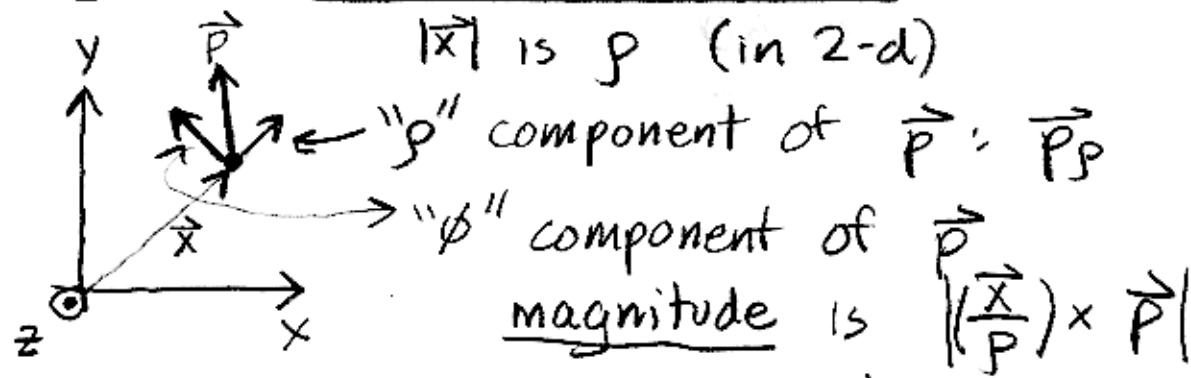 y p⃗ |x⃗| is ρ (in 2-d)
"ρ" component of p⃗ : p⃗ρ
x⃗ "φ" component of p⃗
z x magnitude is |(x⃗/ρ) × p⃗|